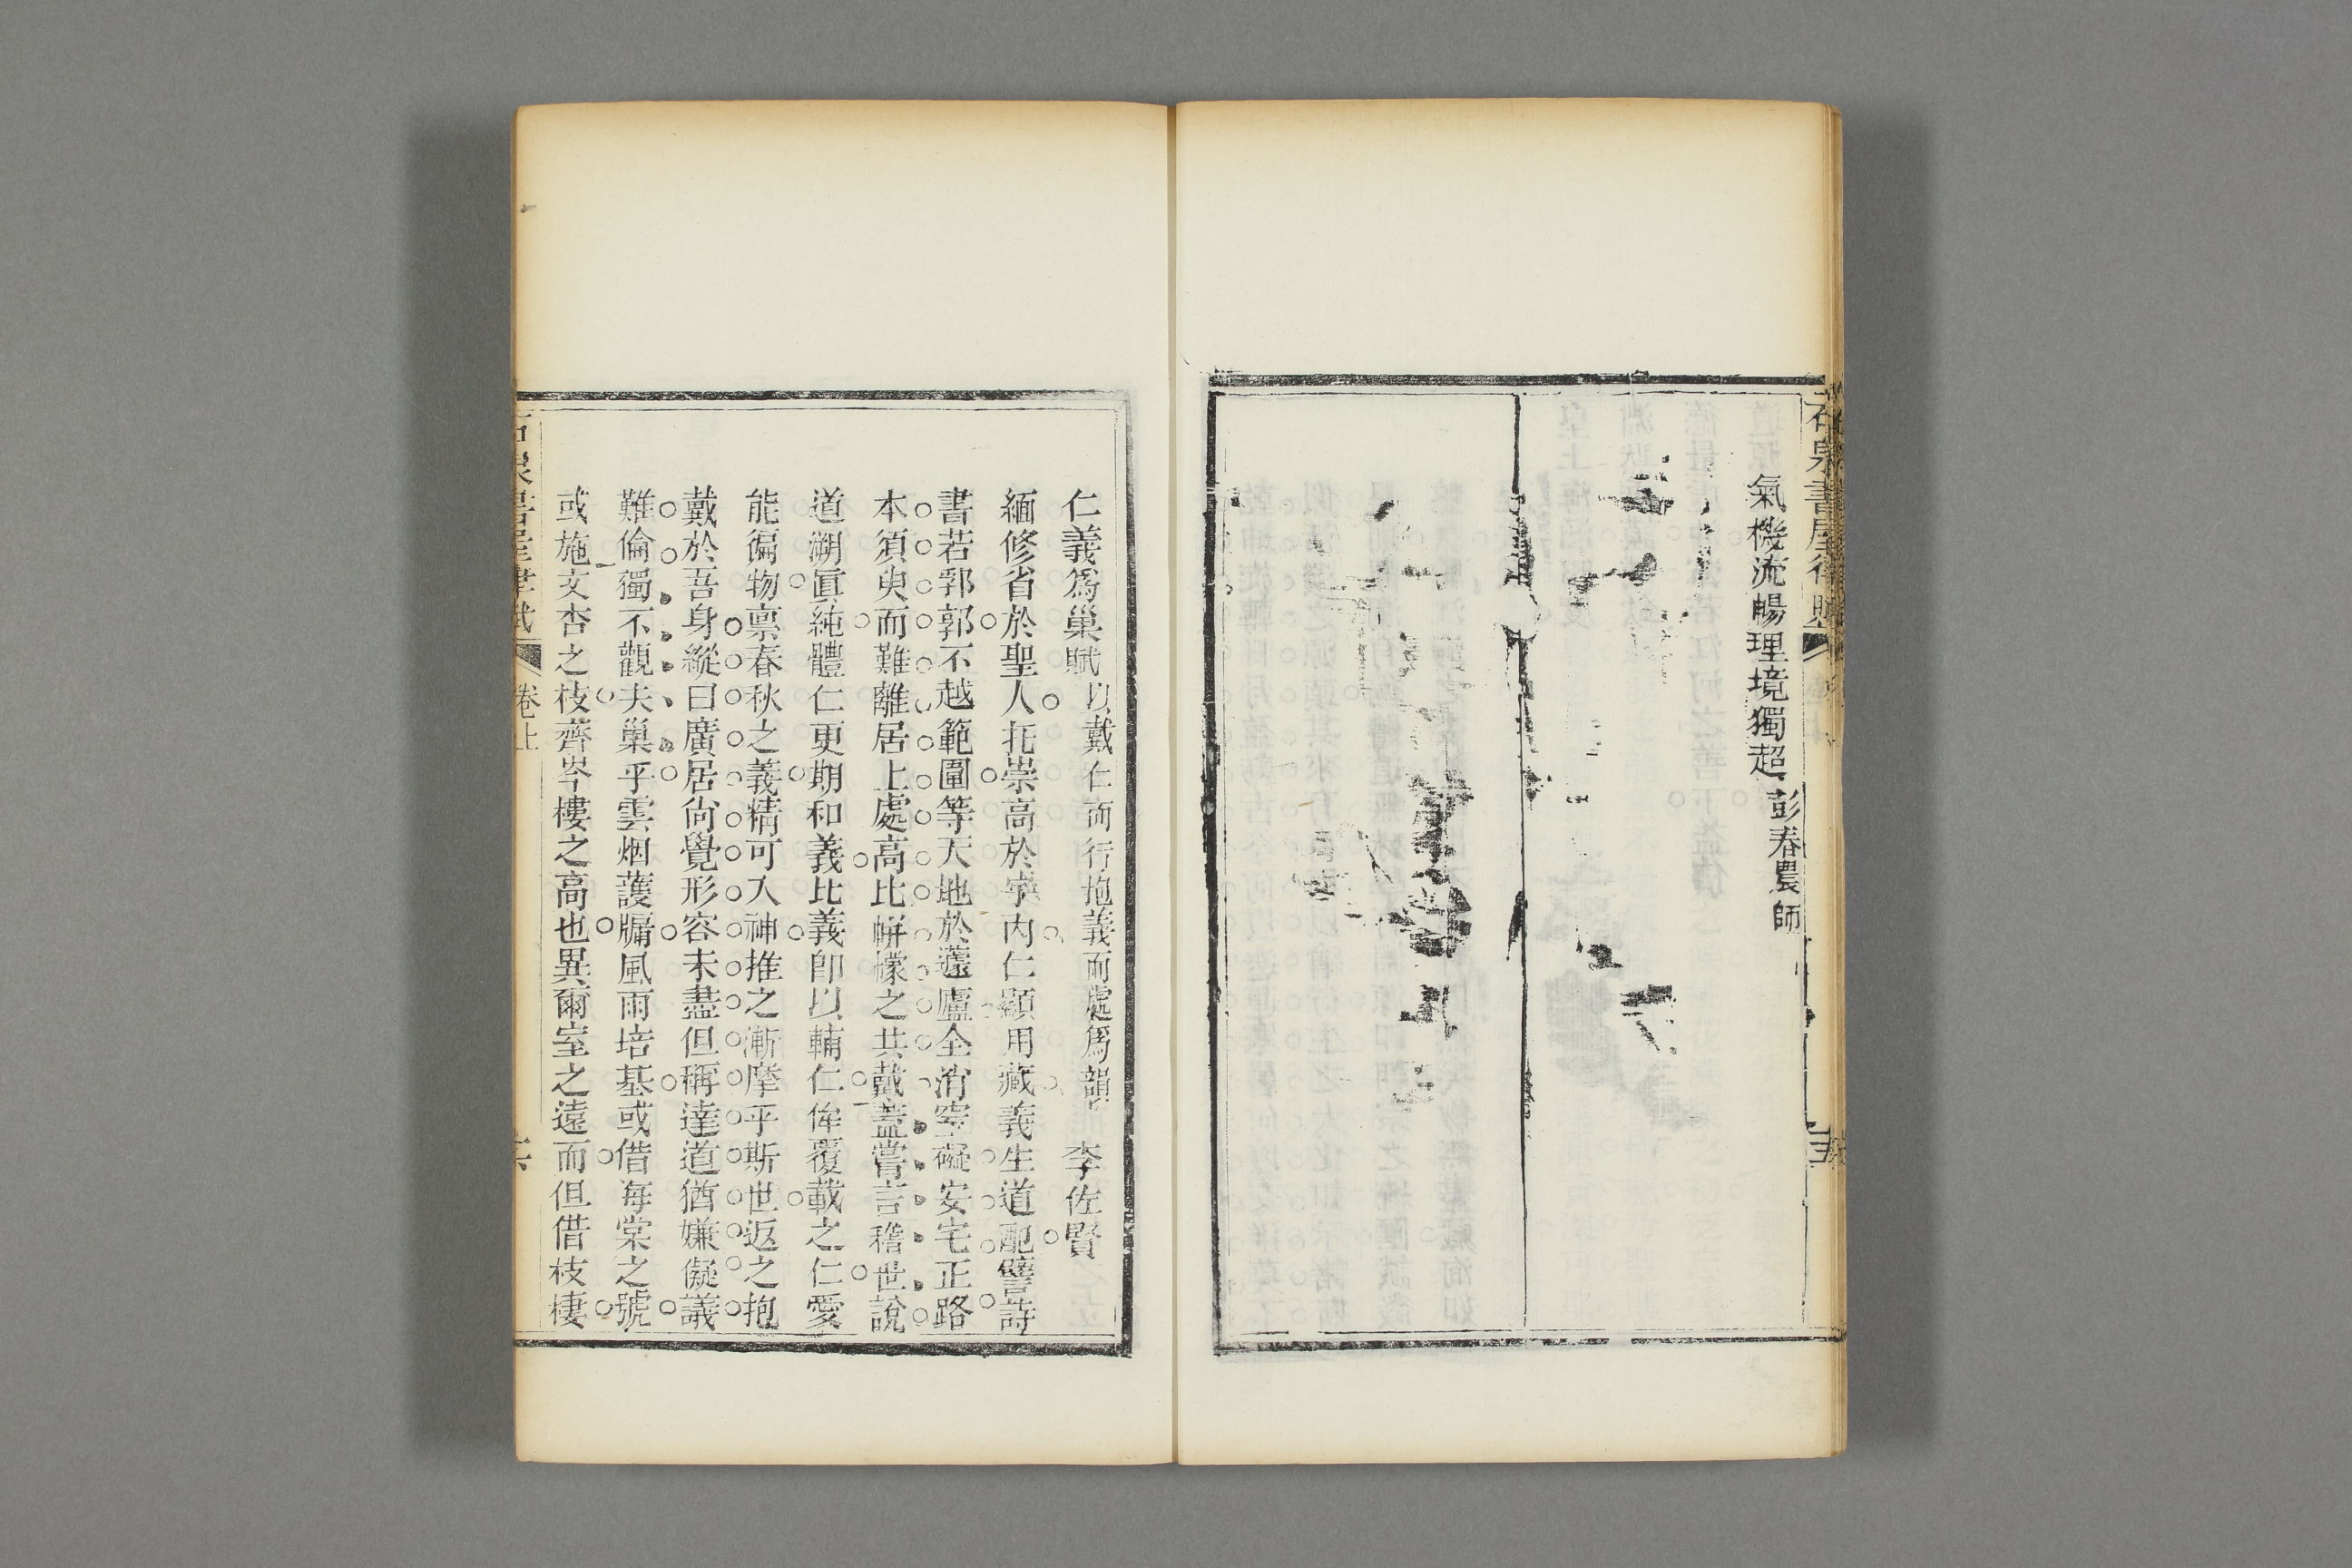 氣機流暢理境獨超 彭春農師
仁義爲巢賦 以戴仁而行抱義而處爲韻 李佐賢
緬修省於聖人托崇高於宇内仁顯用藏義生道配譬詩
書若郛郭不越範圍等天地於蘧廬全消窒礙安宅正路
本須臾而難離居上處高比帡幪之共戴蓋嘗言稽世說
道溯眞純體仁更期和義比義卽以輔仁侔覆載之仁愛
能徧物禀春秋之義精可入神推之漸摩乎斯世返之抱
戴於吾身縱曰廣居尙覺形容未盡但稱達道猶嫌儗議
難倫獨不觀夫巢乎雲烟護牖風雨培基或借海棠之號
或施文杏之枝齊岑樓之高也異爾室之遠而但借枝棲
卷上